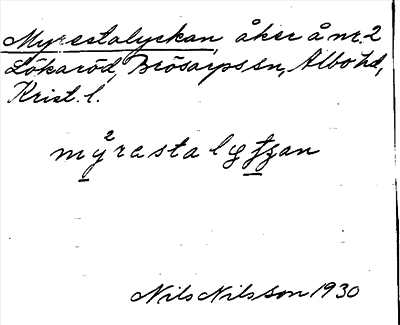 Myrestalyckan, åker å nr. 2
Lökaröd, Brösarps sn, Albo hd,
Krist. l.
mẙ²rasta lyţʒan
Nils Nilsson 1930